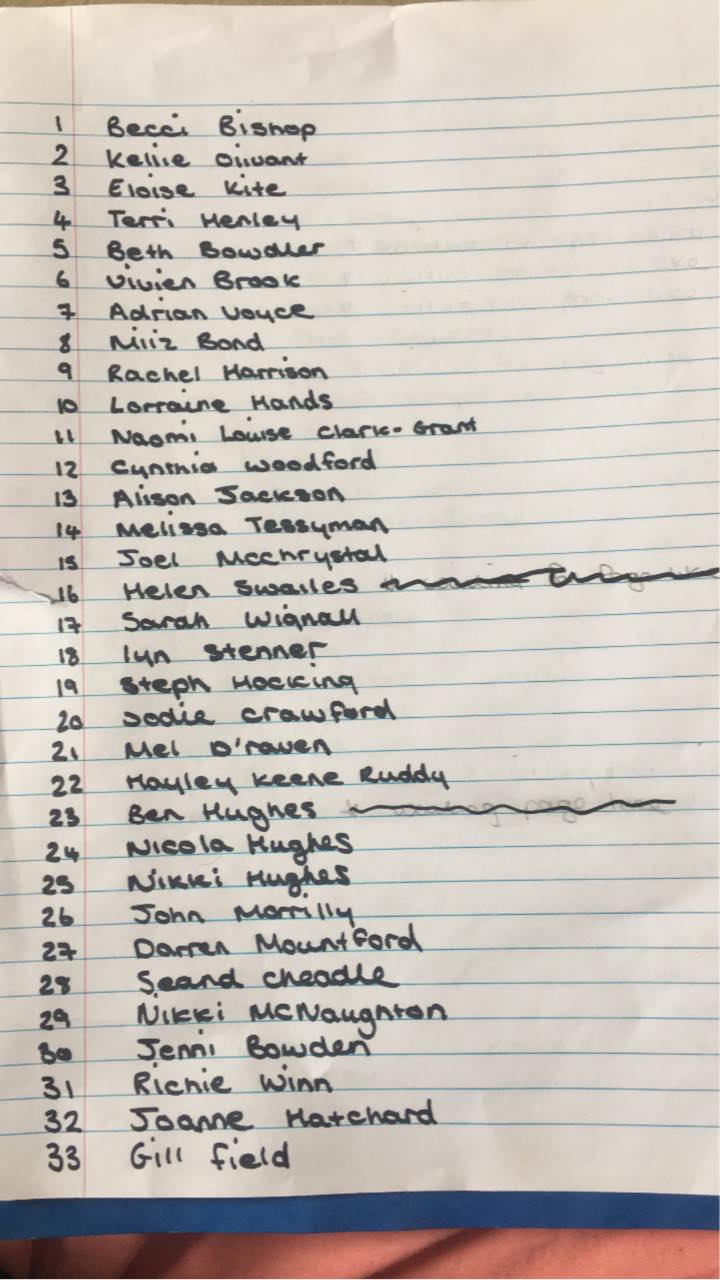 1 Becci Bishop
2 Kellie Olivant
3 Eloise Kite
4 Terri Henley
5 Beth Bowdler
6 Vivien Brook
7 Adrian Voyce
8 Miiz Bond
9 Rachel Harrison
10 Lorraine Hands
11 Naomi Louise Clark-Grant
12 Cynthia Woodford
13 Alison Jackson
14 Melissa Tessyman
15 Joel McChrystal
16 Helen Swailes
17 Sarah Wignall
18 Lyn Stenner
19 Steph Hocking
20 Jodie Crawford
21 Mel D'raven
22 Hayley Keene Ruddy
23 Ben Hughes
24 Nicola Hughes
25 Nikki Hughes
26 John Morrilly
27 Darren Mountford
28 Seand Cheadle
29 Nikki McNaughton
30 Jenni Bowden
31 Richie Winn
32 Joanne Hatchard
33 Gill Field